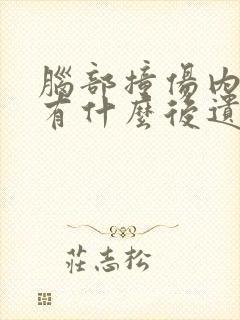 腦部撞傷內
有什麼後遺
莊志松